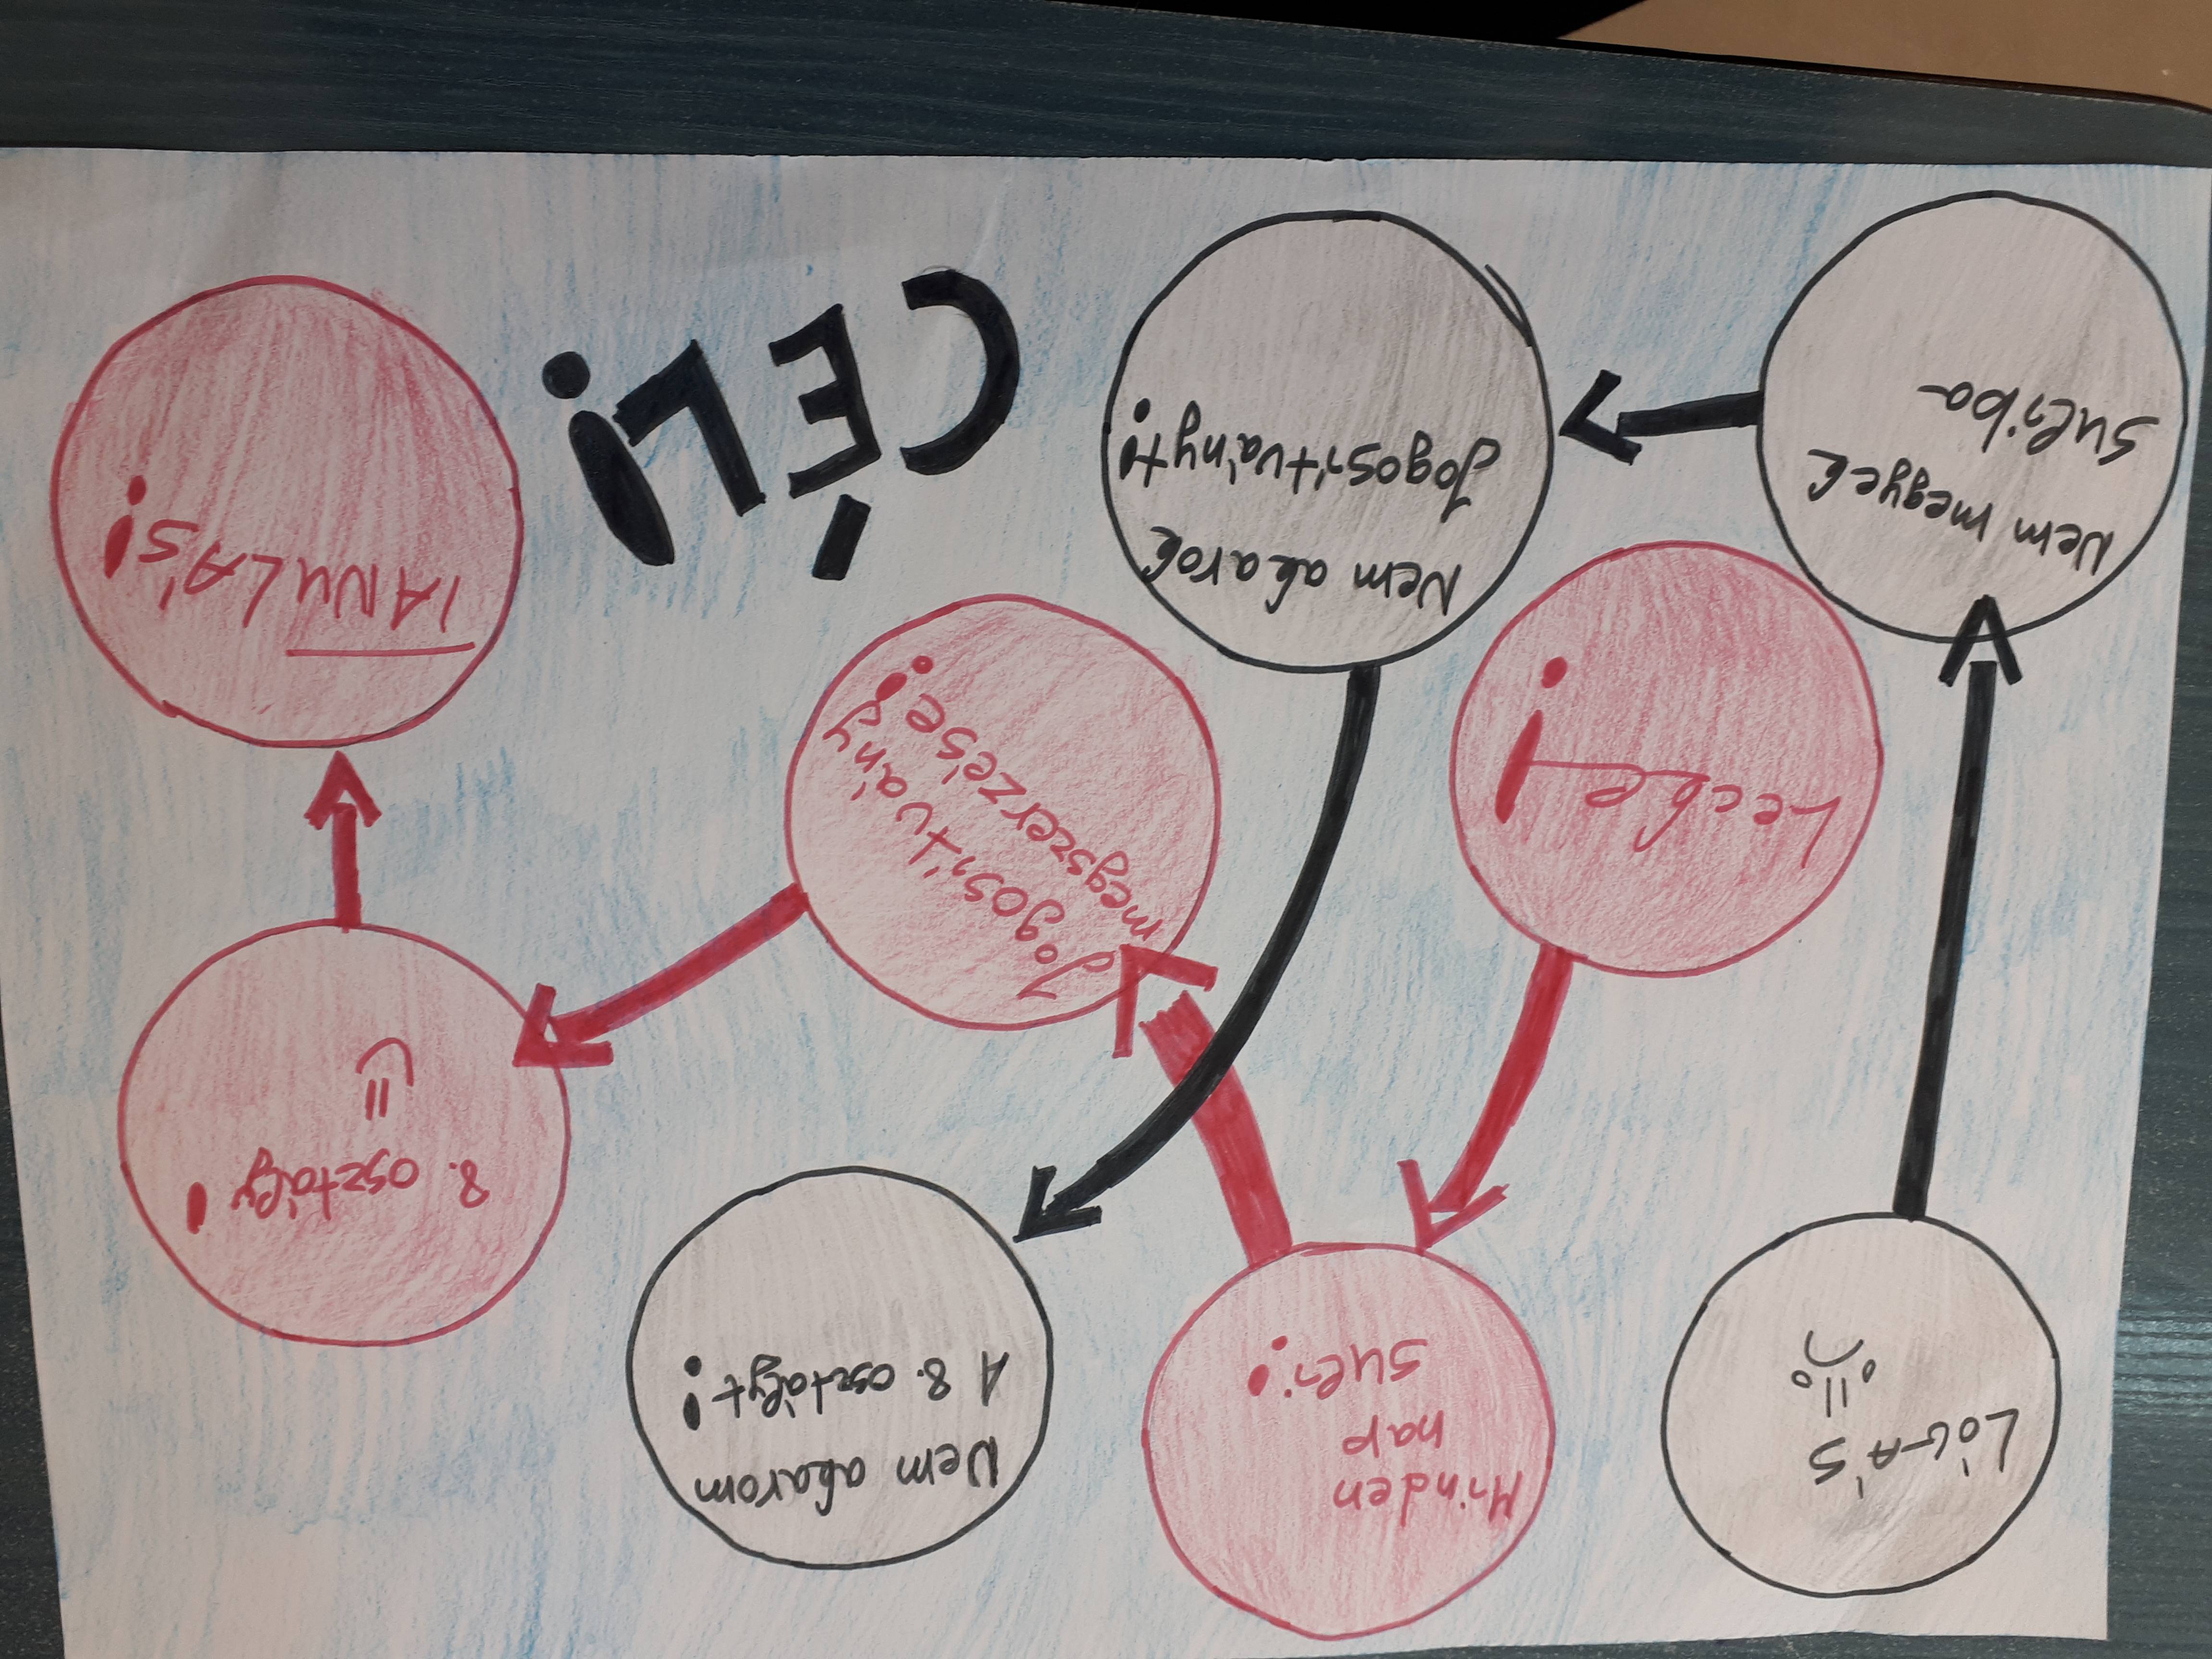 LÓGÁS
Minden
nap
suli!
Nem akarom
A 8. osztályt!
8. osztály!
Lecke!
Jogosítvány
megszerzése!
TANULÁS!
Nem megyek
suliba
Nem akarok
Jogosítványt!
CÉL!